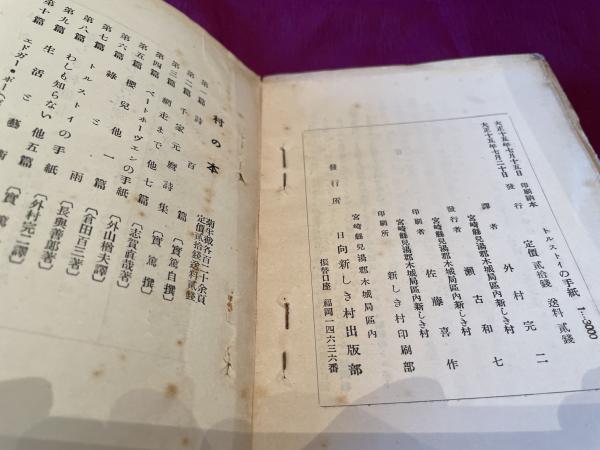 大正十五年七月十五日 印刷納本
大正十五年七月二十日 發行
トルストイの手紙 1-3000
定價貳拾錢 送料貳錢
譯者 外村完二
宮崎縣兒湯郡木城局區内新しき村
發行者 瀬古和七
宮崎縣兒湯郡木城局區内新しき村
印刷者 佐藤喜作
宮崎縣兒湯郡木城局區内新しき村
印刷所 新しき村印刷部
宮崎縣兒湯郡木城局區内
發行所 日向新しき村出版部
振替口座 福岡一四六三六番
村の本
菊半截各百二十余頁
定價貳拾錢送料貳錢
第一篇 詩百篇 〔實篤自撰〕
第二篇 千家元麿詩集 〔實篤撰〕
第三篇 網走まで他七篇 〔志賀直哉著〕
第四篇 ベートホーヴェンの手紙 〔外山楢夫譯〕
第五篇 櫻兒他一篇 〔倉田百三著〕
第六篇 綠
第七篇 トルストイの手紙 〔外村完二譯〕
第八篇 わしも知らない他五篇
第九篇 生活
第十篇 エドガー・ポー